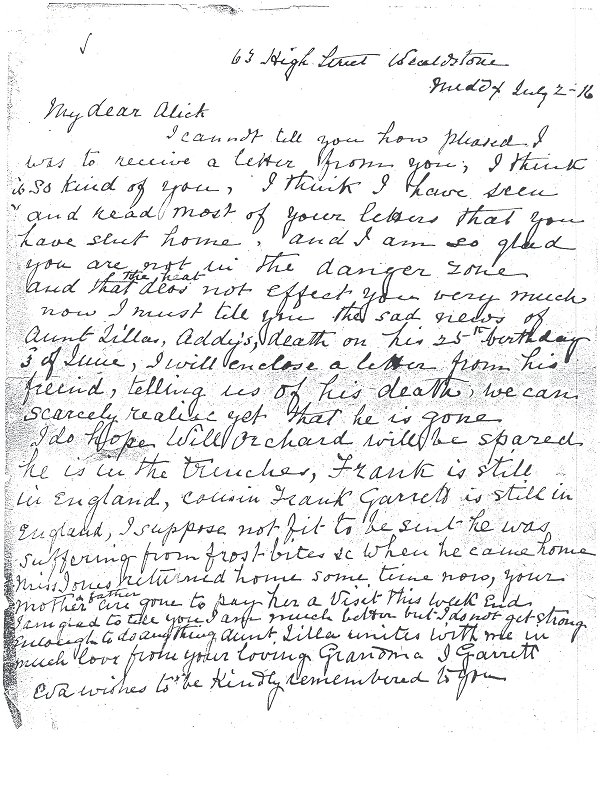 63 High Street Wealdstone
Meddx July 2-16
My dear Alick
I cannot tell you how pleased I
was to receive a letter from you, I think
is so kind of you, I think I have seen
and read most of your letters that you
have sent home, and I am so glad
you are not in the danger zone
and that the heat deos not effect you very much
now I must tell you the sad news of
Aunt Lillas, Addys, death on his 25th birthday
3 of June, I will enclose a letter from his
freind, telling us of his death, we can
scarcely realize yet that he is gone
I do hope Will Orchard will be spared
he is in the trenches, Frank is still
in England, cousin Frank Garrett is still in
England, I suppose not fit to be sent he was
suffering from frost bites &c when he came home
Miss Jones returned home some time now, your
Mother & father are gone to pay her a visit this week end
I am glad to tell you I am much better but I do not get strong
enough to do anything Aunt Lilla unites with me in
much love from your loving Grandma J Garrett
Eva wishes to be kindly remembered to you